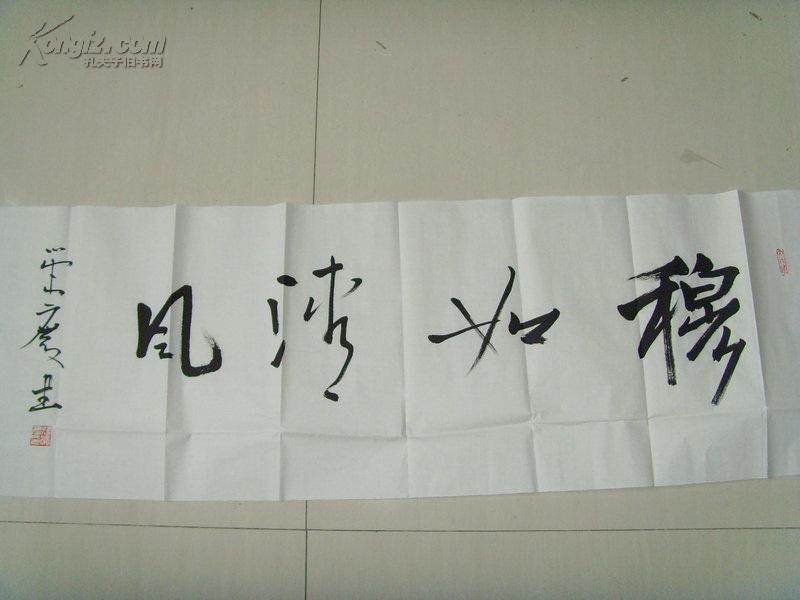 Kongfz.com
孔夫子旧书网
穆如清风
崇广书